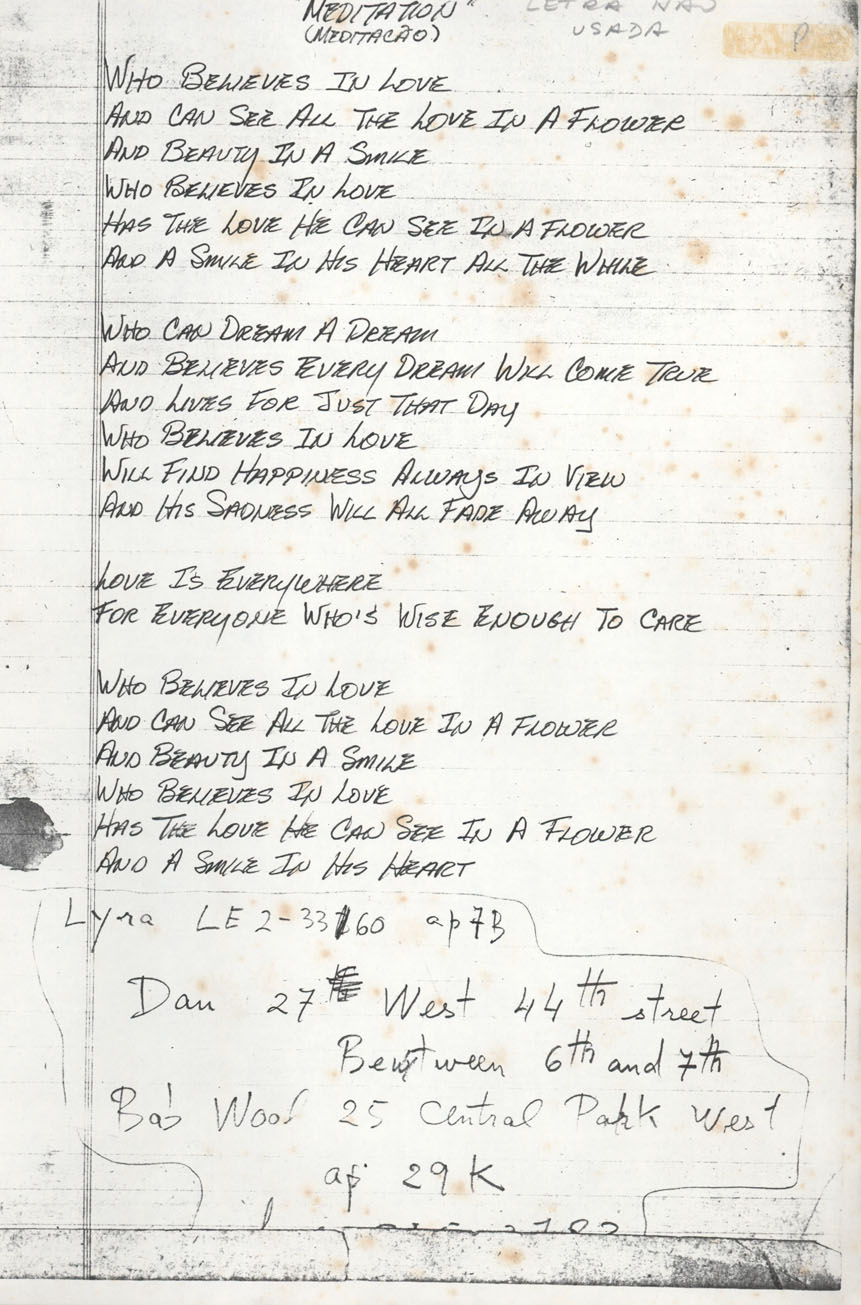 "MEDITATION"
(MEDITAÇÃO)
LETRA NAO
USADA
P
WHO BELIEVES IN LOVE
AND CAN SEE ALL THE LOVE IN A FLOWER
AND BEAUTY IN A SMILE
WHO BELIEVES IN LOVE
HAS THE LOVE HE CAN SEE IN A FLOWER
AND A SMILE IN HIS HEART ALL THE WHILE
WHO CAN DREAM A DREAM
AND BELIEVES EVERY DREAM WILL COME TRUE
AND LIVES FOR JUST THAT DAY
WHO BELIEVES IN LOVE
WILL FIND HAPPINESS ALWAYS IN VIEW
AND HIS SADNESS WILL ALL FADE AWAY
LOVE IS EVERYWHERE
FOR EVERYONE WHO'S WISE ENOUGH TO CARE
WHO BELIEVES IN LOVE
AND CAN SEE ALL THE LOVE IN A FLOWER
AND BEAUTY IN A SMILE
WHO BELIEVES IN LOVE
HAS THE LOVE HE CAN SEE IN A FLOWER
AND A SMILE IN HIS HEART
Lyra LE 2-33160 ap 7B
Dan 27 West 44th street
Bewtween 6th and 7th
Bob Wool 25 Central Park West
ap 29K